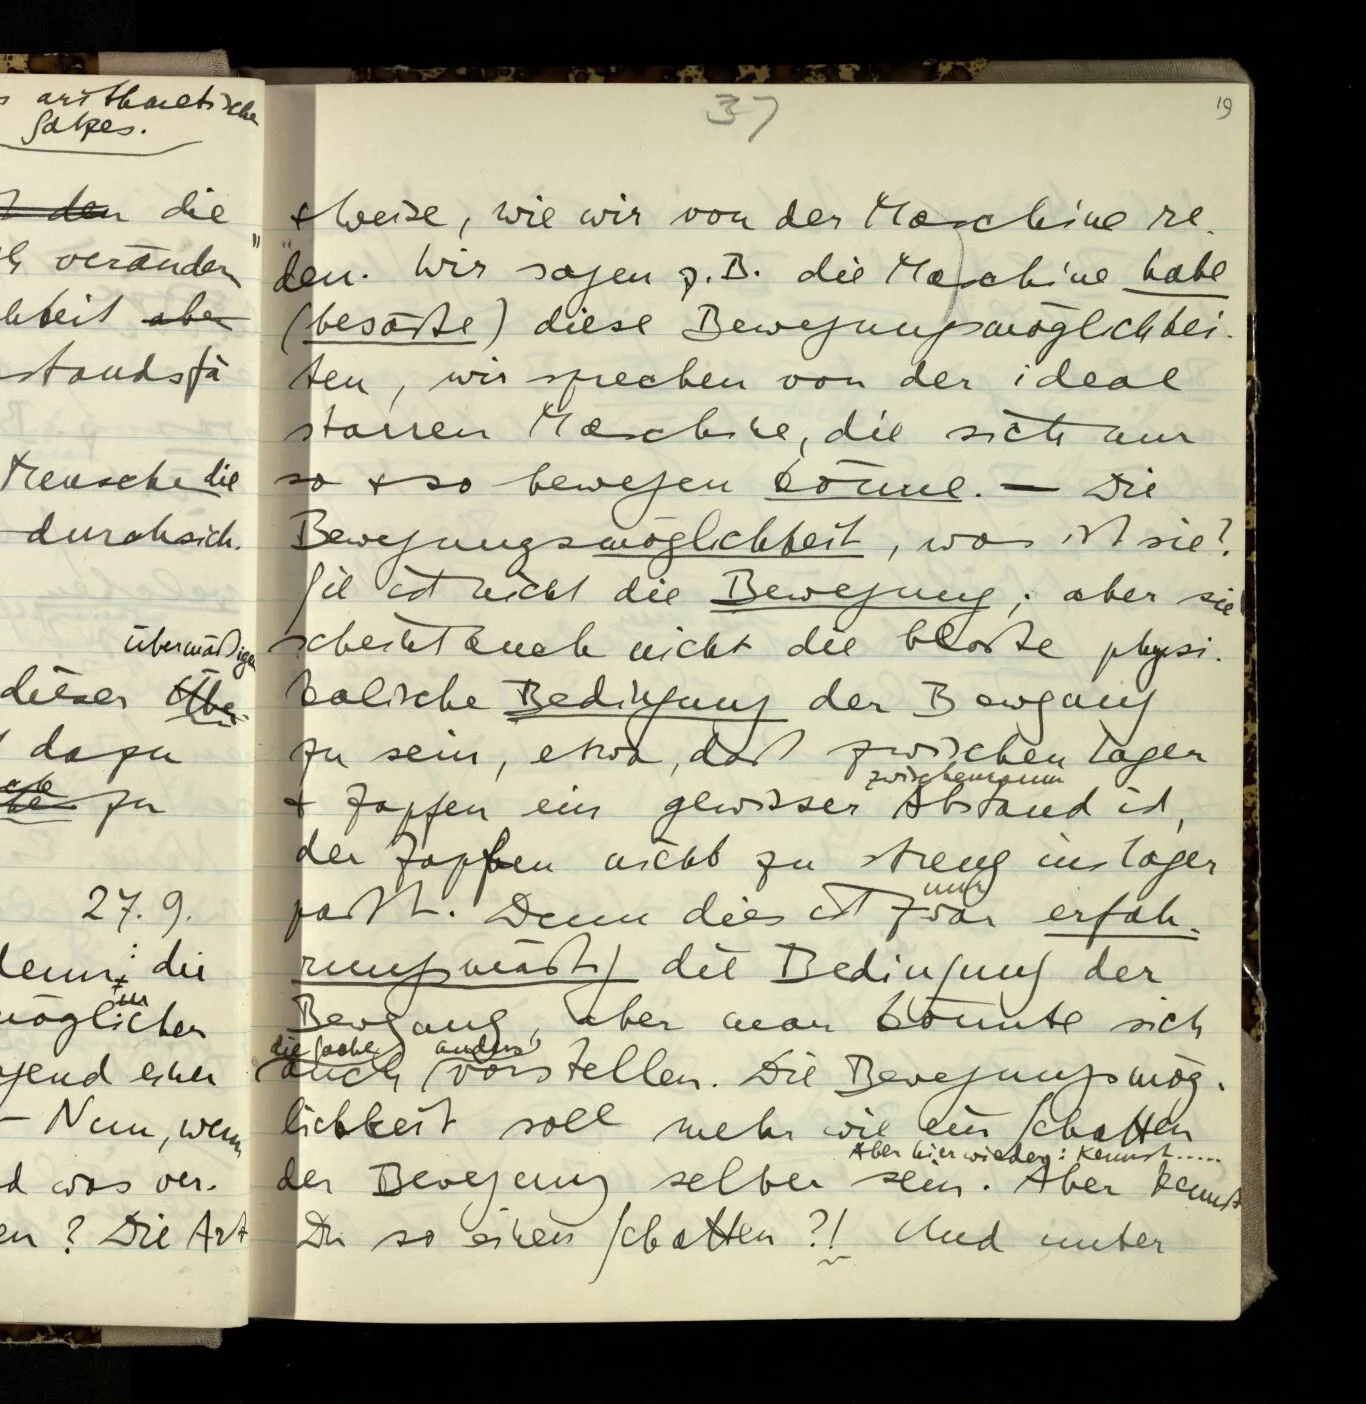 arithmetische
Satzes.
den die
veränden
aber
Mensche die
durchsich.
übermäßige
dieser Übe
dazu
zu
27.9.
denn: die
im
möglichen
einer
– Nun, wenn
was ver.
? Die Art
37
19
+ Weise, wie wir von der Maschine re.
den. Wir sagen z.B. die Maschine habe
(besäße) diese Bewegungsmöglichkei.
ten, wir sprechen von der ideal
starren Maschine, die sich nur
so + so bewegen könne. — Die
Bewegungsmöglichkeit, was ist sie?
Sie ist nicht die Bewegung; aber sie
scheint auch nicht die bloße physi.
kalische Bedingung der Bewgung
zu sein, etwa, daß zwischen Lager
zwischenraum
+ Zapfen ein gewisser Abstand ist,
der Zapfen nicht zu streng ins Lager
nur
paßt. Denn dies ist zwar erfah.
rungsmäßig die Bedingung der
Bewgung, aber man könnte sich
die Sache anders
auch vorstellen. Die Bewegungsmög.
lichkeit soll mehr wie ein Schatten
Aber hier wieder: Kennst.....
der Bewegung selber sein. Aber kennst
Du so einen Schatten?! Und unter